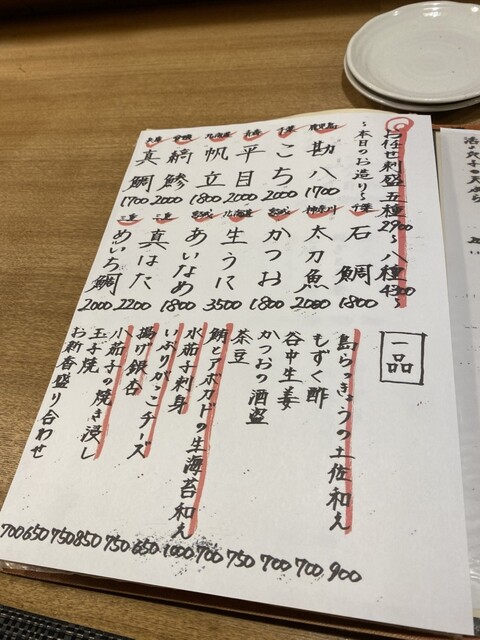 お任せ刺盛五種2900〜八種4300〜
〜本日のお造り〜
勘八 1700
こち 2000
青森 平目 2000
北海道 帆立 1800
縞鯵 2000
兵庫 真鯛 1700
石鯛 1800
神奈川 太刀魚 2000
宮城 かつお 1800
北海道 生うに 3500
宮城 あいなめ 1800
三重 真はた 2200
三重 めいち鯛 2000
一品
島らっきょうの土佐和え 900
もずく酢 700
谷中生姜 700
かつおの酒盗 750
茶豆 700
鯛とアボカドの生海苔和え 1000
水茄子刺身 650
いぶりがっこチーズ 750
揚げ銀杏 850
小茄子の焼き浸し 750
玉子焼 650
お新香盛り合わせ 700